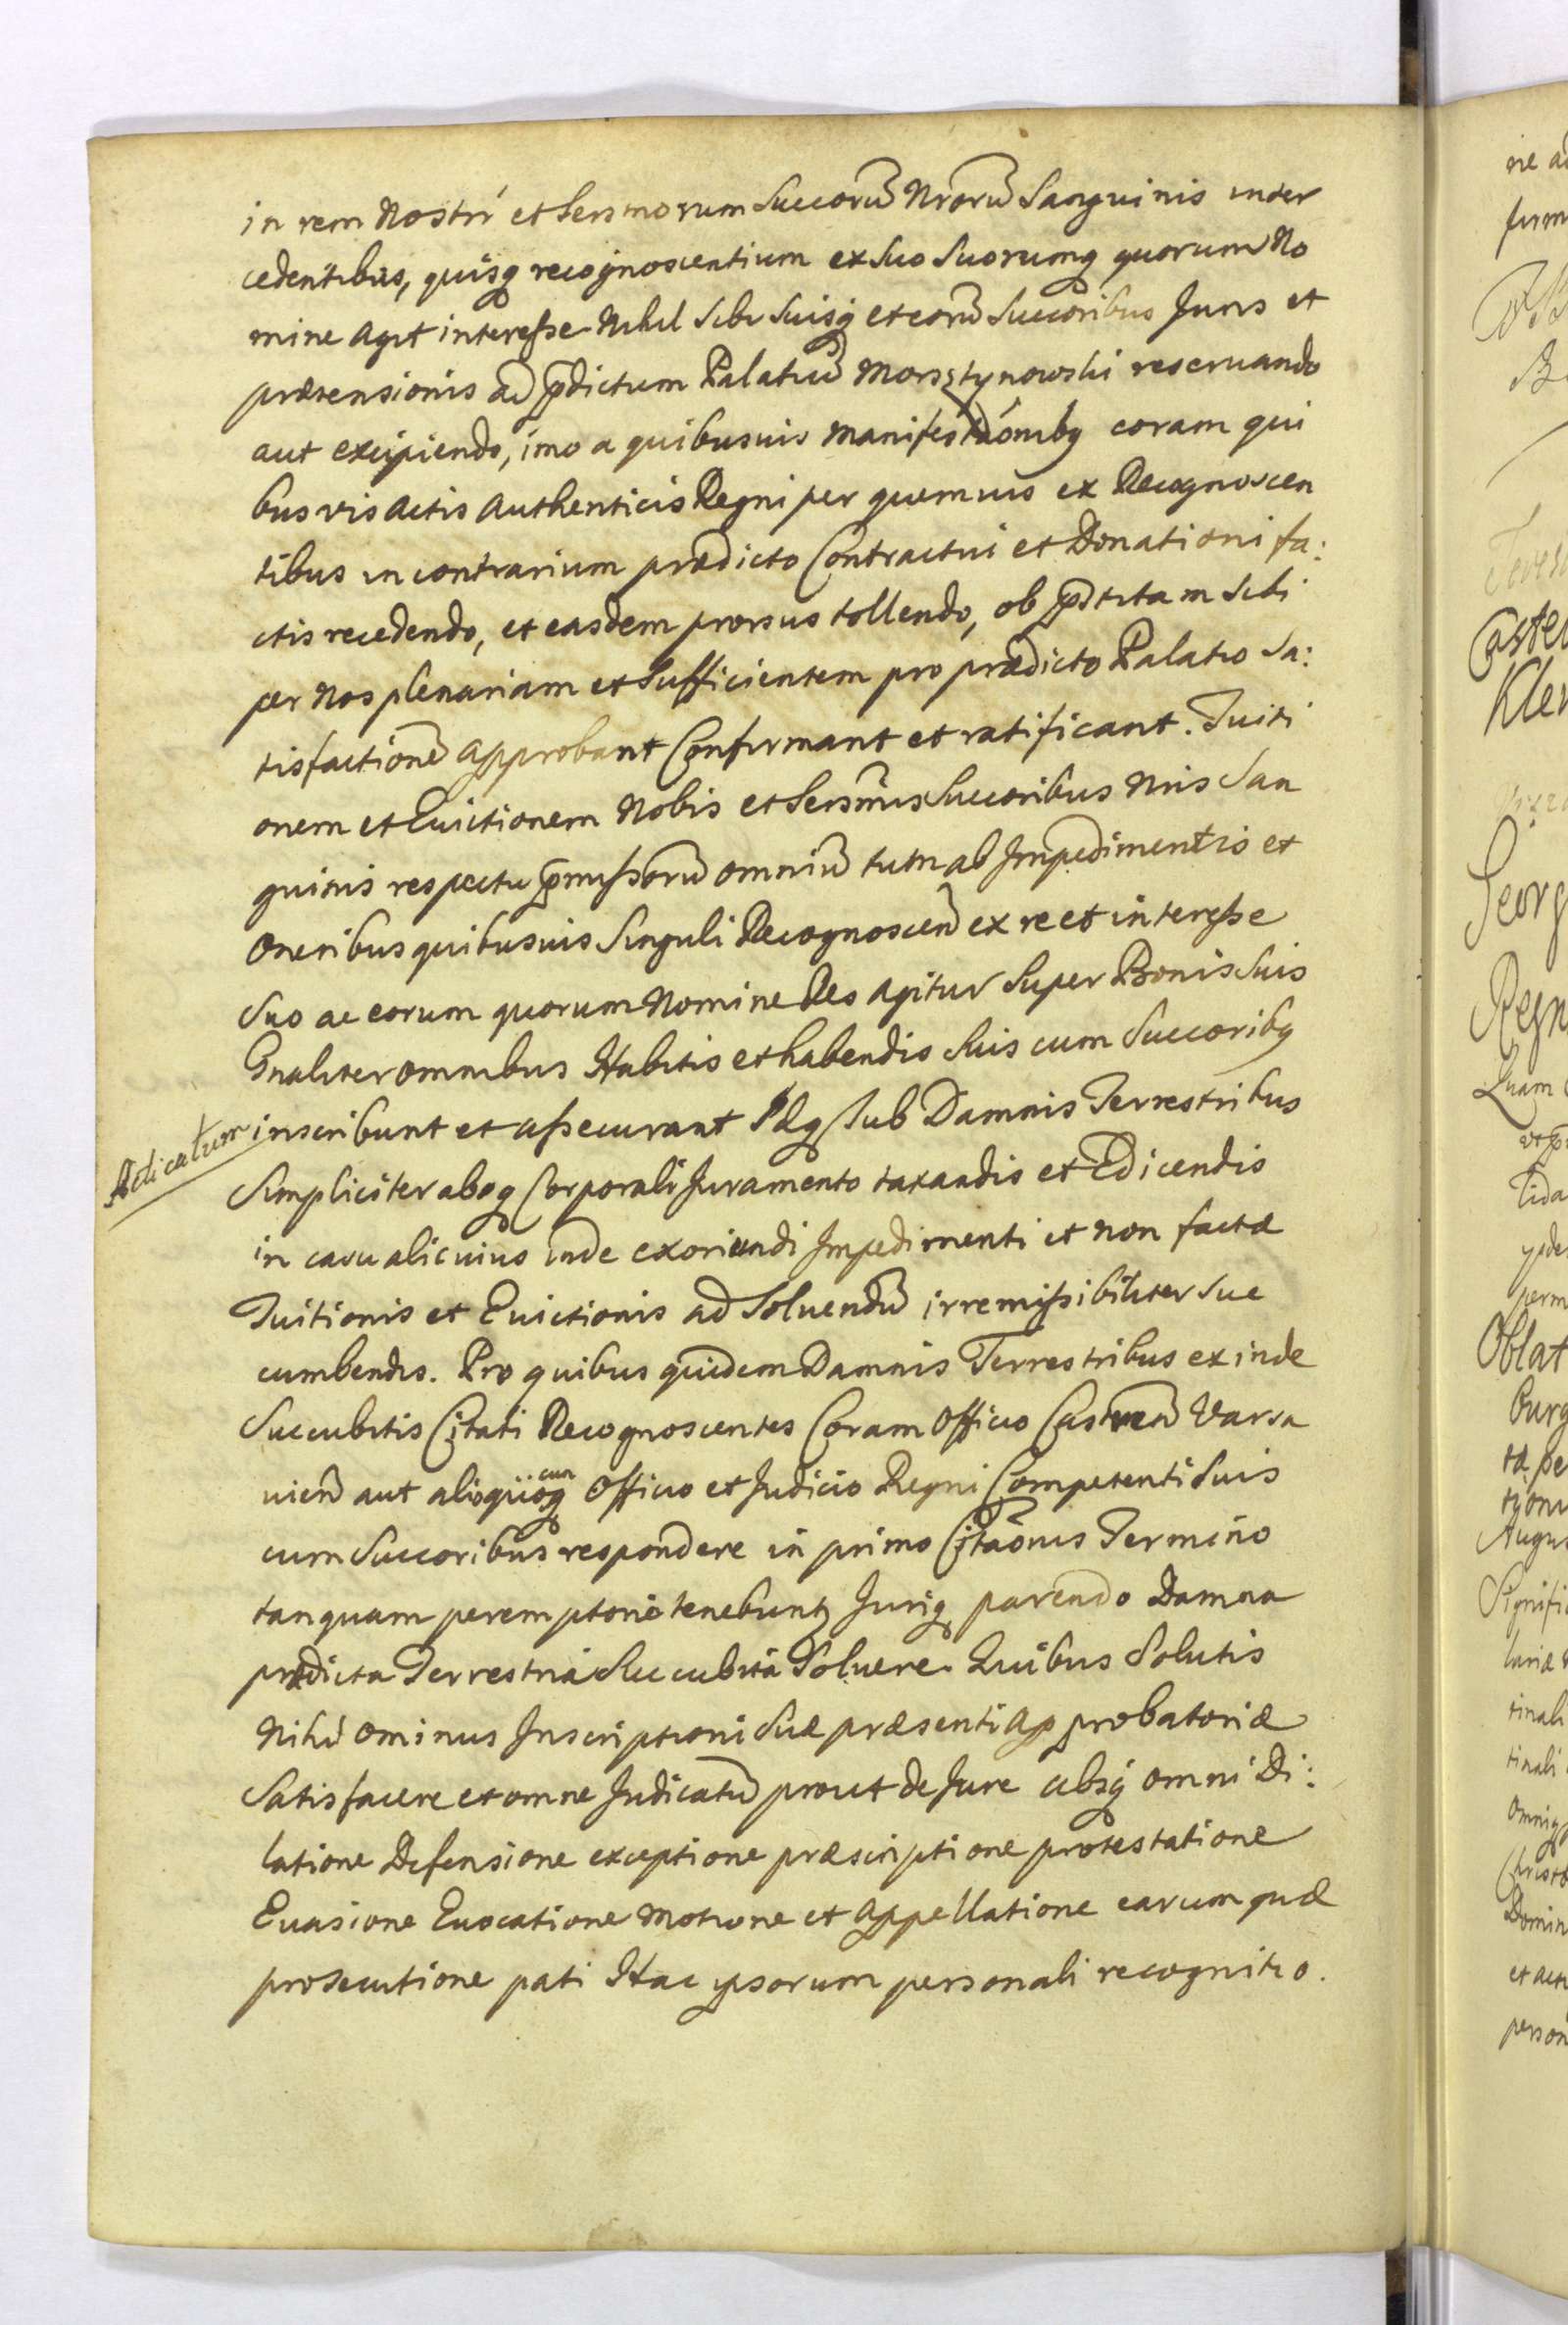 in rem Nostri et Sersmorum Succorū Nrorū Sanguinis inter
cedentibus, quisq recognoscentium ex Suo Suorumq quorum No
mine Agit interesse Nihil Sibi Suisq et eorū Succoribus Juris et
prætensionis ad p̄dictum Palatiū Morsztynowski reseruando
aut excipiendo, imo a quibusuis Manifestaōnibq coram qui
busvis Actis Authenticis Regni per quemuis ex Recognoscen
tibus in contrarium prædicto Contractui et Donationi fa:
ctis recedendo, et easdem prorsus tollendo, ob p̄stitam Sibi
per Nos plenariam et Sufficientem pro prædicto Palatio Sa:
tisfactionē Approbant Confirmant et ratificant. Tuiti
onem et Euictionem Nobis et Sersmis Succoribus Nris San
guinis respectu p̄missorū omniū tum ab Impedimentis et
Oneribus quibusuis Singuli Recognoscen̄ ex re et interesse
Suo ac eorum quorum Nomine Res Agitur Super Bonis Suis
Gnaliter omnibus Habitis et habendis Suis cum Succoribq
inscribunt et assecurant Idq Sub Damnis Terrestribus
Adicatum
Simpliciter absq Corporali Juramento taxandis et Edicendis
in casu alicuius inde exoriundi Impedimenti et non factæ
Tuitionis et Euictionis ad Soluendū irremissibiliter Suc
cumbendis. Pro quibus quidem Damnis Terrestribus exinde
Succubitis Citati Recognoscentes Coram Officio Castren̄ Varsa
uien̄ aut alioquocunq Officio et Judicio Regni Competenti Suis
cum Succoribus respondere in primo Citaōnis Termino
tanquam peremptorie tenebuntꝫ Juriq parendo Damna
prædicta Terrestria Succubita Soluere. Quibus Solutis
Nihil ominus Inscriptioni Suæ præsenti Approbatoriæ
Satisfacere et omne Judicatū prout de Jure absq omni Di:
latione Defensione exceptione præscriptione protestatione
Euasione Euocatione Motione et Appellatione earumquæ
prosecutione pati Hac ipsorum personali recognitio.